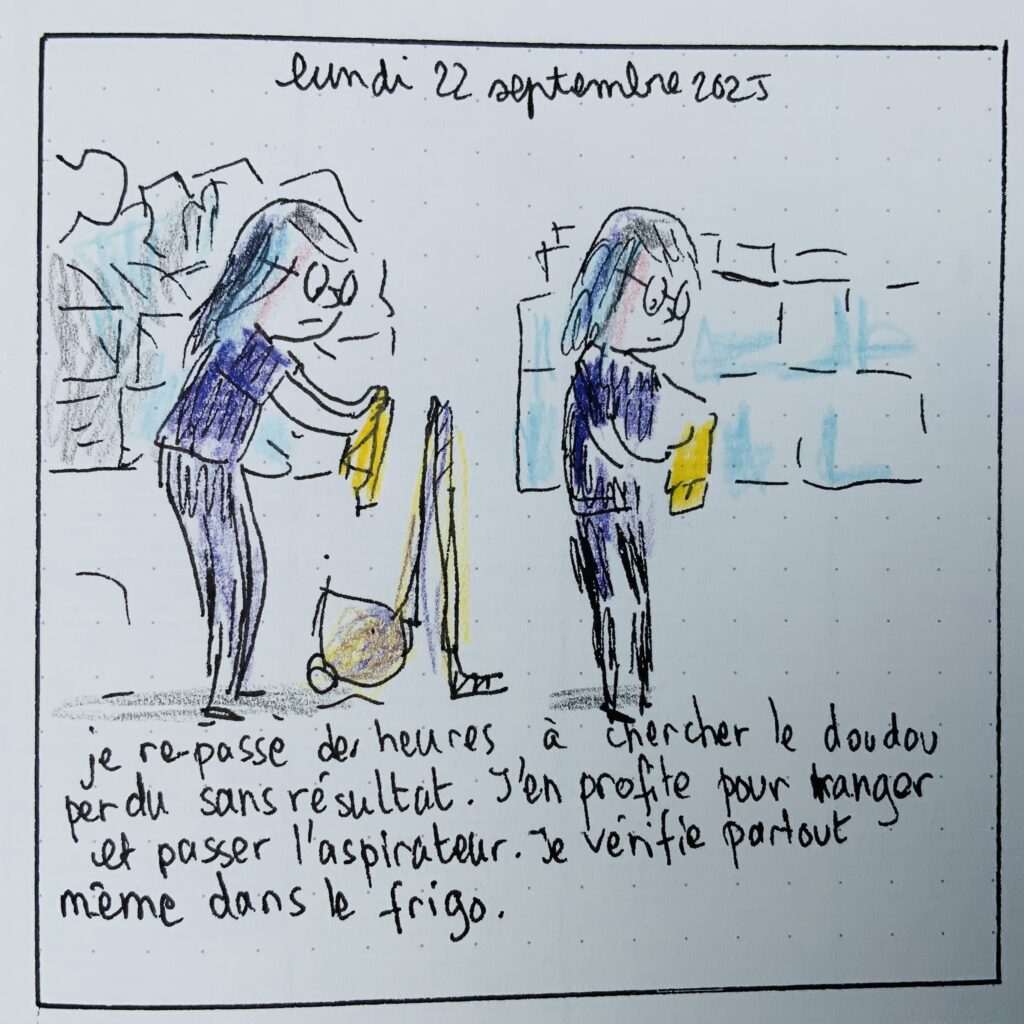 lundi 22 septembre 2025
je re-passe des heures à chercher le doudou
perdu sans résultat. J'en profite pour ranger
et passer l'aspirateur. Je vérifie partout
même dans le frigo.